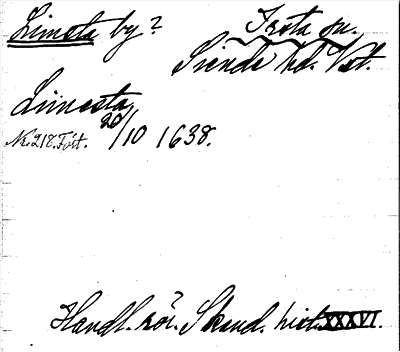 Limsta by? Irsta sn.
Siende hd. Vst.
Limesta,
Nr. 218. Fört. 20/10 1638.
Handl. rör. Skand. hist. XXXVI.